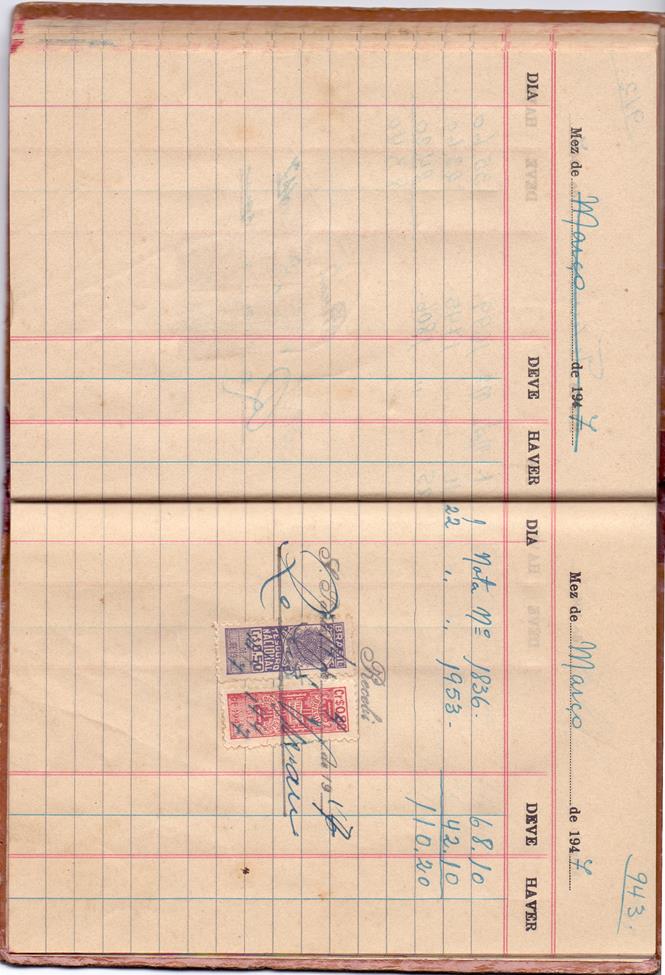 Mez de Março de 1947
DIA DEVE HAVER
943.
Mez de Março de 1947
DIA DEVE HAVER
1 Nota Nº 1836. 68.10
22 " " 1953. 42.10
110.20
Recebi
de 19
BRASIL
TESOURO
NACIONAL
CR$0,50